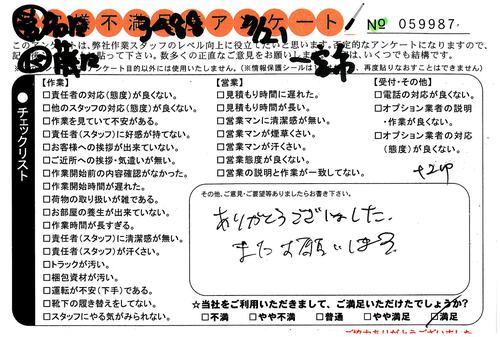 不満 アンケート
№ 059987
このアンケートは、弊社作業スタッフのレベル向上に役立てたいと思います。否定的なアンケートになりますので、
貼って下さい。数多くの正直なご意見をお願いします
いくつでも結構です。
アンケート目的以外には使用いたしません。(※情報保護シールは
再度貼りなおすことはできません)
チェックリスト
【作業】
□責任者の対応(態度)が良くない。
□他のスタッフの対応(態度)が良くない。
□作業を見ていて不安がある。
□責任者(スタッフ)に好感が持てない。
□お客様への挨拶が出来ていない。
□ご近所への挨拶・気遣いが無い。
□作業開始前の内容確認がなかった。
□作業開始時間が遅れた。
□荷物の取り扱いが雑である。
□お部屋の養生が出来ていない。
□作業時間が長すぎる。
□責任者(スタッフ)に清潔感が無い。
□責任者(スタッフ)が汗くさい。
□トラックが汚い。
□梱包資材が汚い。
□運転が不安(下手)である。
□靴下の履き替えをしてない。
□スタッフにやる気がみられない。
【営業】
□見積もり時間に遅れた。
□見積もり時間が長い。
□営業マンに清潔感が無い。
□営業マンが煙草くさい。
□営業マンが汗くさい。
□営業態度が良くない。
□営業の説明と作業が一致してない。
【受付・その他】
□電話の対応が良くない。
□オプション業者の説明
・作業が良くない。
□オプション業者の対応
(態度)が良くない。
その他、ご意見・ご要望等ありましたらお書き下さい。
ありがとうございました。
またお願いします。
☆当社をご利用いただきまして、ご満足いただけたでしょうか?
□不満 □やや不満 □普通 □やや満足 □満足
ご協力ありがとうございました